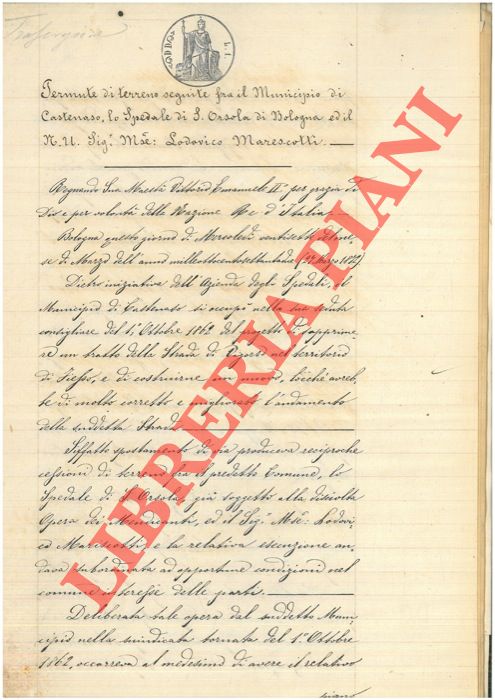 Permute di terreno seguite fra il Municipio di
Castenaso, lo Spedale di S. Orsola di Bologna ed il
N. U. Sig.r M.se: Lodovico Marescotti.
Regnando Sua Maestà Vittorio Emanuele II.° per grazia di
Dio e per volontà della Nazione Re d'Italia
Bologna questo giorno di Mercoledì ventisette del me-
se di Marzo dell'anno milleottocentosettantadue (27 Marzo 1872)
Dietro iniziativa dell'Azienda degli Spedali, il
Municipio di Castenaso si occupò nella sua seduta
consigliare del 1.° Ottobre 1862 del progetto di sopprime-
re un tratto della Strada di nel territorio
di Fiesso, e di costruirne un nuovo, locchè avreb-
be di molto corretto e migliorato l'andamento
della suddetta Strada.
Siffatto spostamento di via produceva reciproche
cessioni di terreno fra il predetto Comune, lo
Spedale di S. Orsola, già soggetto alla disciolta
Opera dei Mendicanti, ed il Sig.r M.se: Lodovi-
co Mariscotti, e la relativa esecuzione an-
dava subordinata ad opportune condizioni nel
comune interesse delle parti.
Deliberata tale opera dal suddetto Muni-
cipio nella suindicata tornata del 1.° Ottobre
1862, occorreva al medesimo di avere il relativo
piano
LIBRERIA PIANI